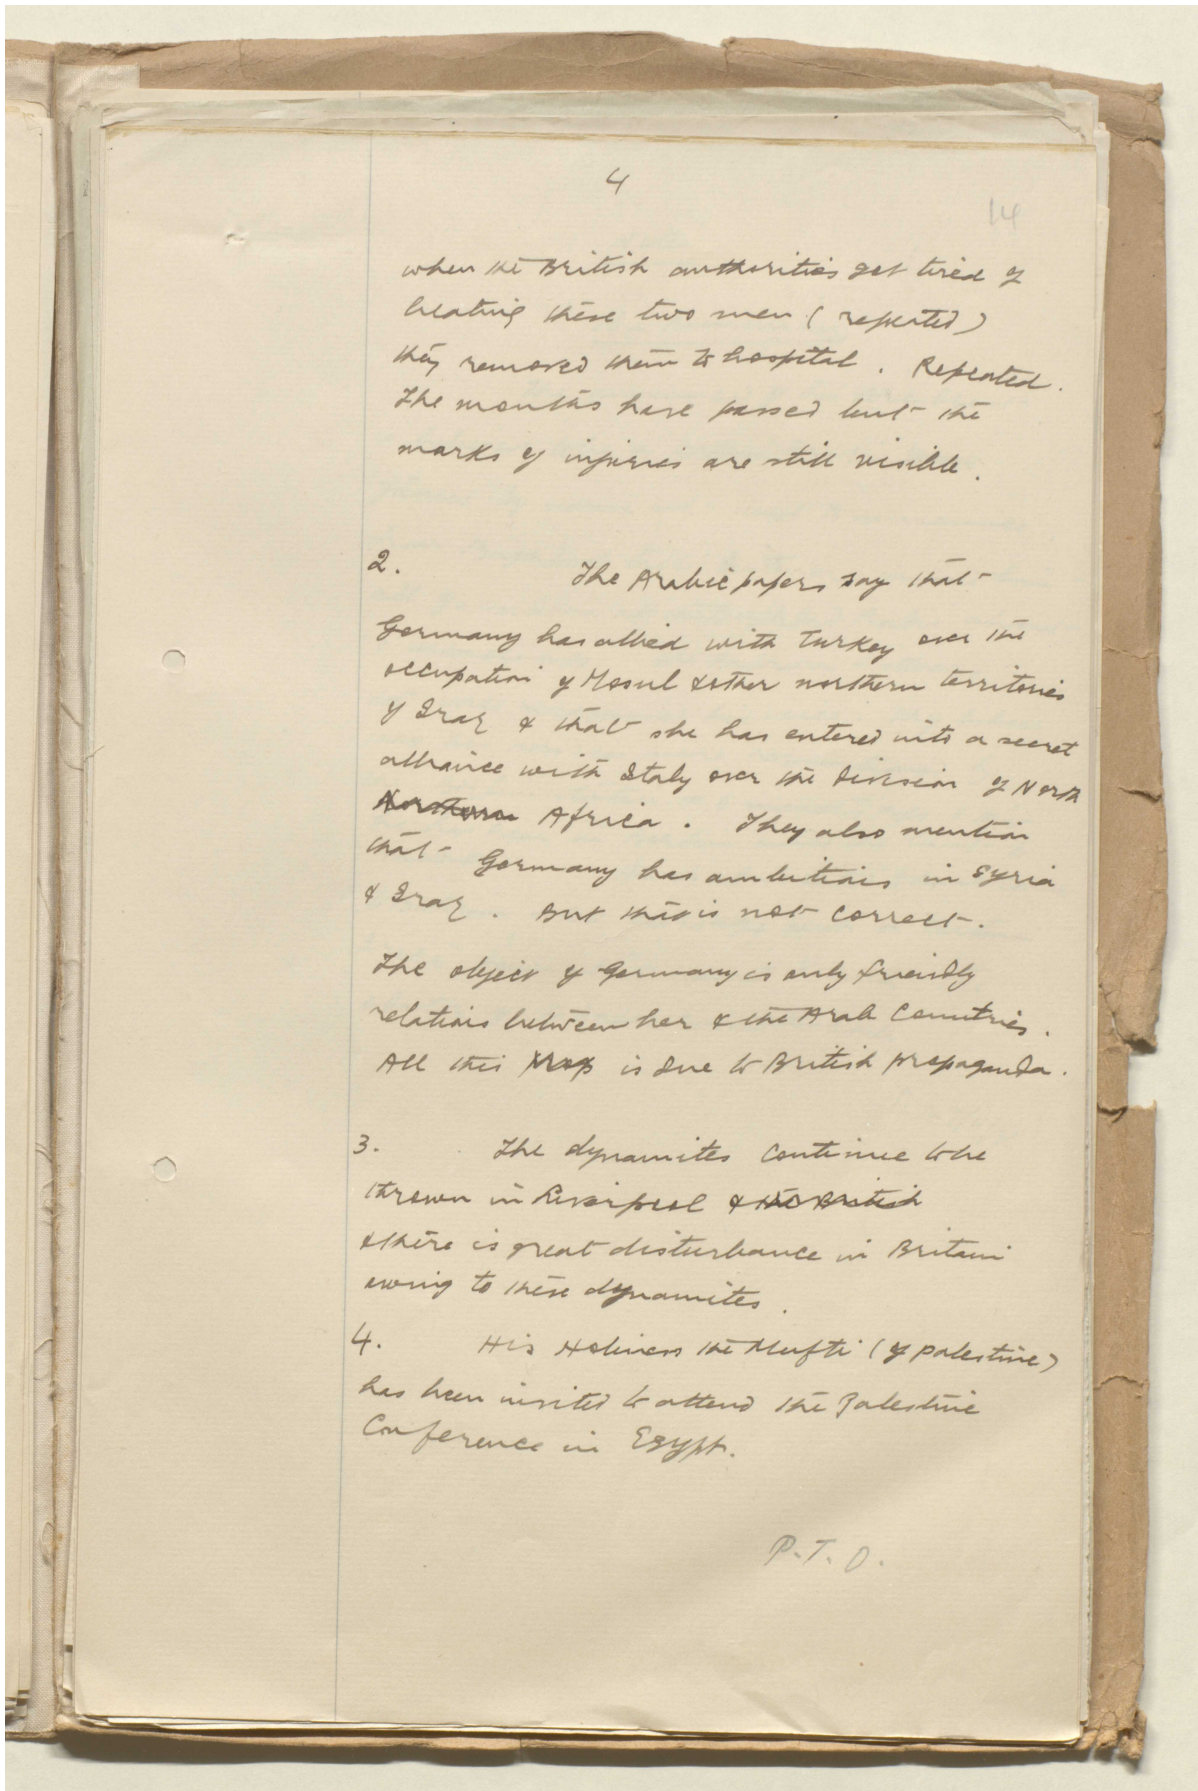 4
14
when the British authorities get tired of
beating these two men (repeated)
they removed them to hospital. Repeated.
The months have passed but the
marks of injuries are still visible.
2. The Arabic papers say that
Germany has allied with Turkey over the
occupation of Mosul & other northern territories
of Iraq & that she has entered into a secret
alliance with Italy over the division of North
Northern Africa. They also mention
that Germany has ambitions in Syria
& Iraq. But this is not correct.
The object of Germany is only friendly
relations between her & the Arab Countries.
All this is due to British propaganda.
3. The dynamites continue to be
thrown in Liverpool & the British
& there is great disturbance in Britain
owing to these dynamites.
4. His Holiness the Mufti (of Palestine)
has been invited to attend the Palestine
Conference in Egypt.
P.T.O.